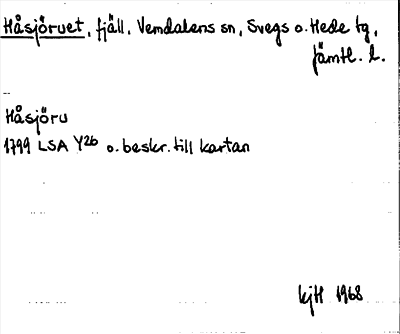 Håsjöruet, fjäll, Vemdalens sn, Svegs o. Hede tg,
Jämtl. l.
Håsjöru
1799 LSA Y26 o. beskr. till kartan
kjH 1968